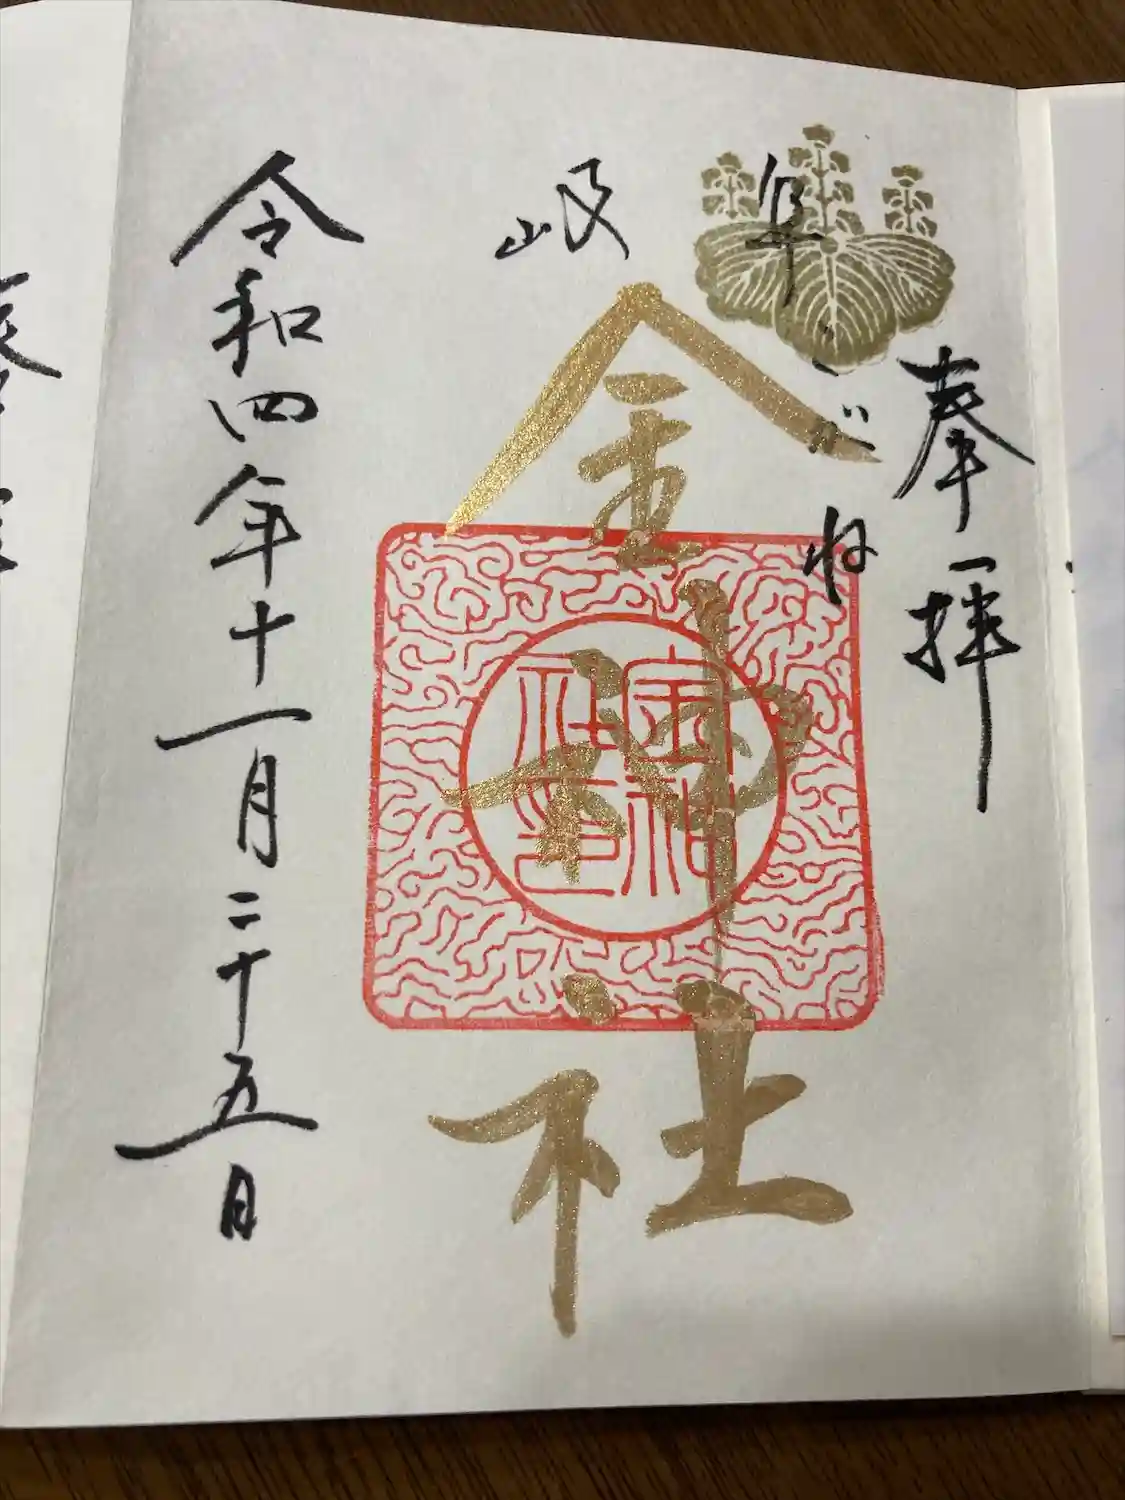 奉拝
岐阜
こがね
金神社
金神
社印
令和四年十一月二十五日